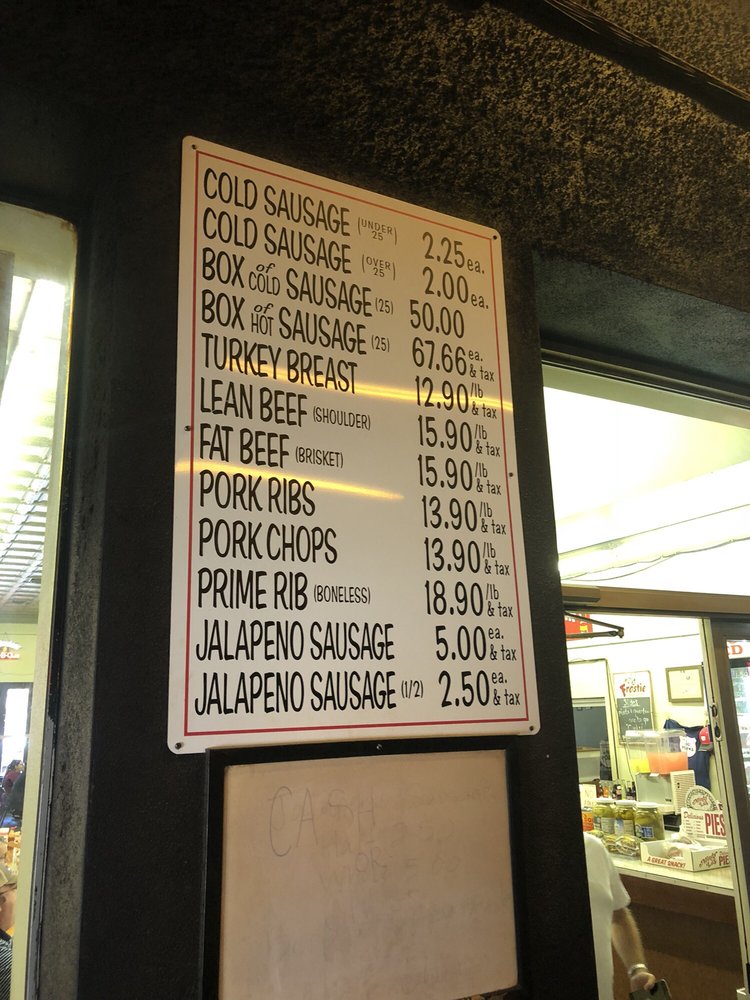 COLD SAUSAGE (UNDER 25) 2.25 ea.
COLD SAUSAGE (OVER 25) 2.00 ea.
BOX of COLD SAUSAGE (25) 50.00
BOX of HOT SAUSAGE (25) 67.66 ea. & tax
TURKEY BREAST 12.90 /lb & tax
LEAN BEEF (SHOULDER) 15.90 /lb & tax
FAT BEEF (BRISKET) 15.90 /lb & tax
PORK RIBS 13.90 /lb & tax
PORK CHOPS 13.90 /lb & tax
PRIME RIB (BONELESS) 18.90 /lb & tax
JALAPENO SAUSAGE 5.00 ea. & tax
JALAPENO SAUSAGE (1/2) 2.50 ea. & tax
CASH
OR
Frostie
Delicious
PIES
A GREAT SNACK!